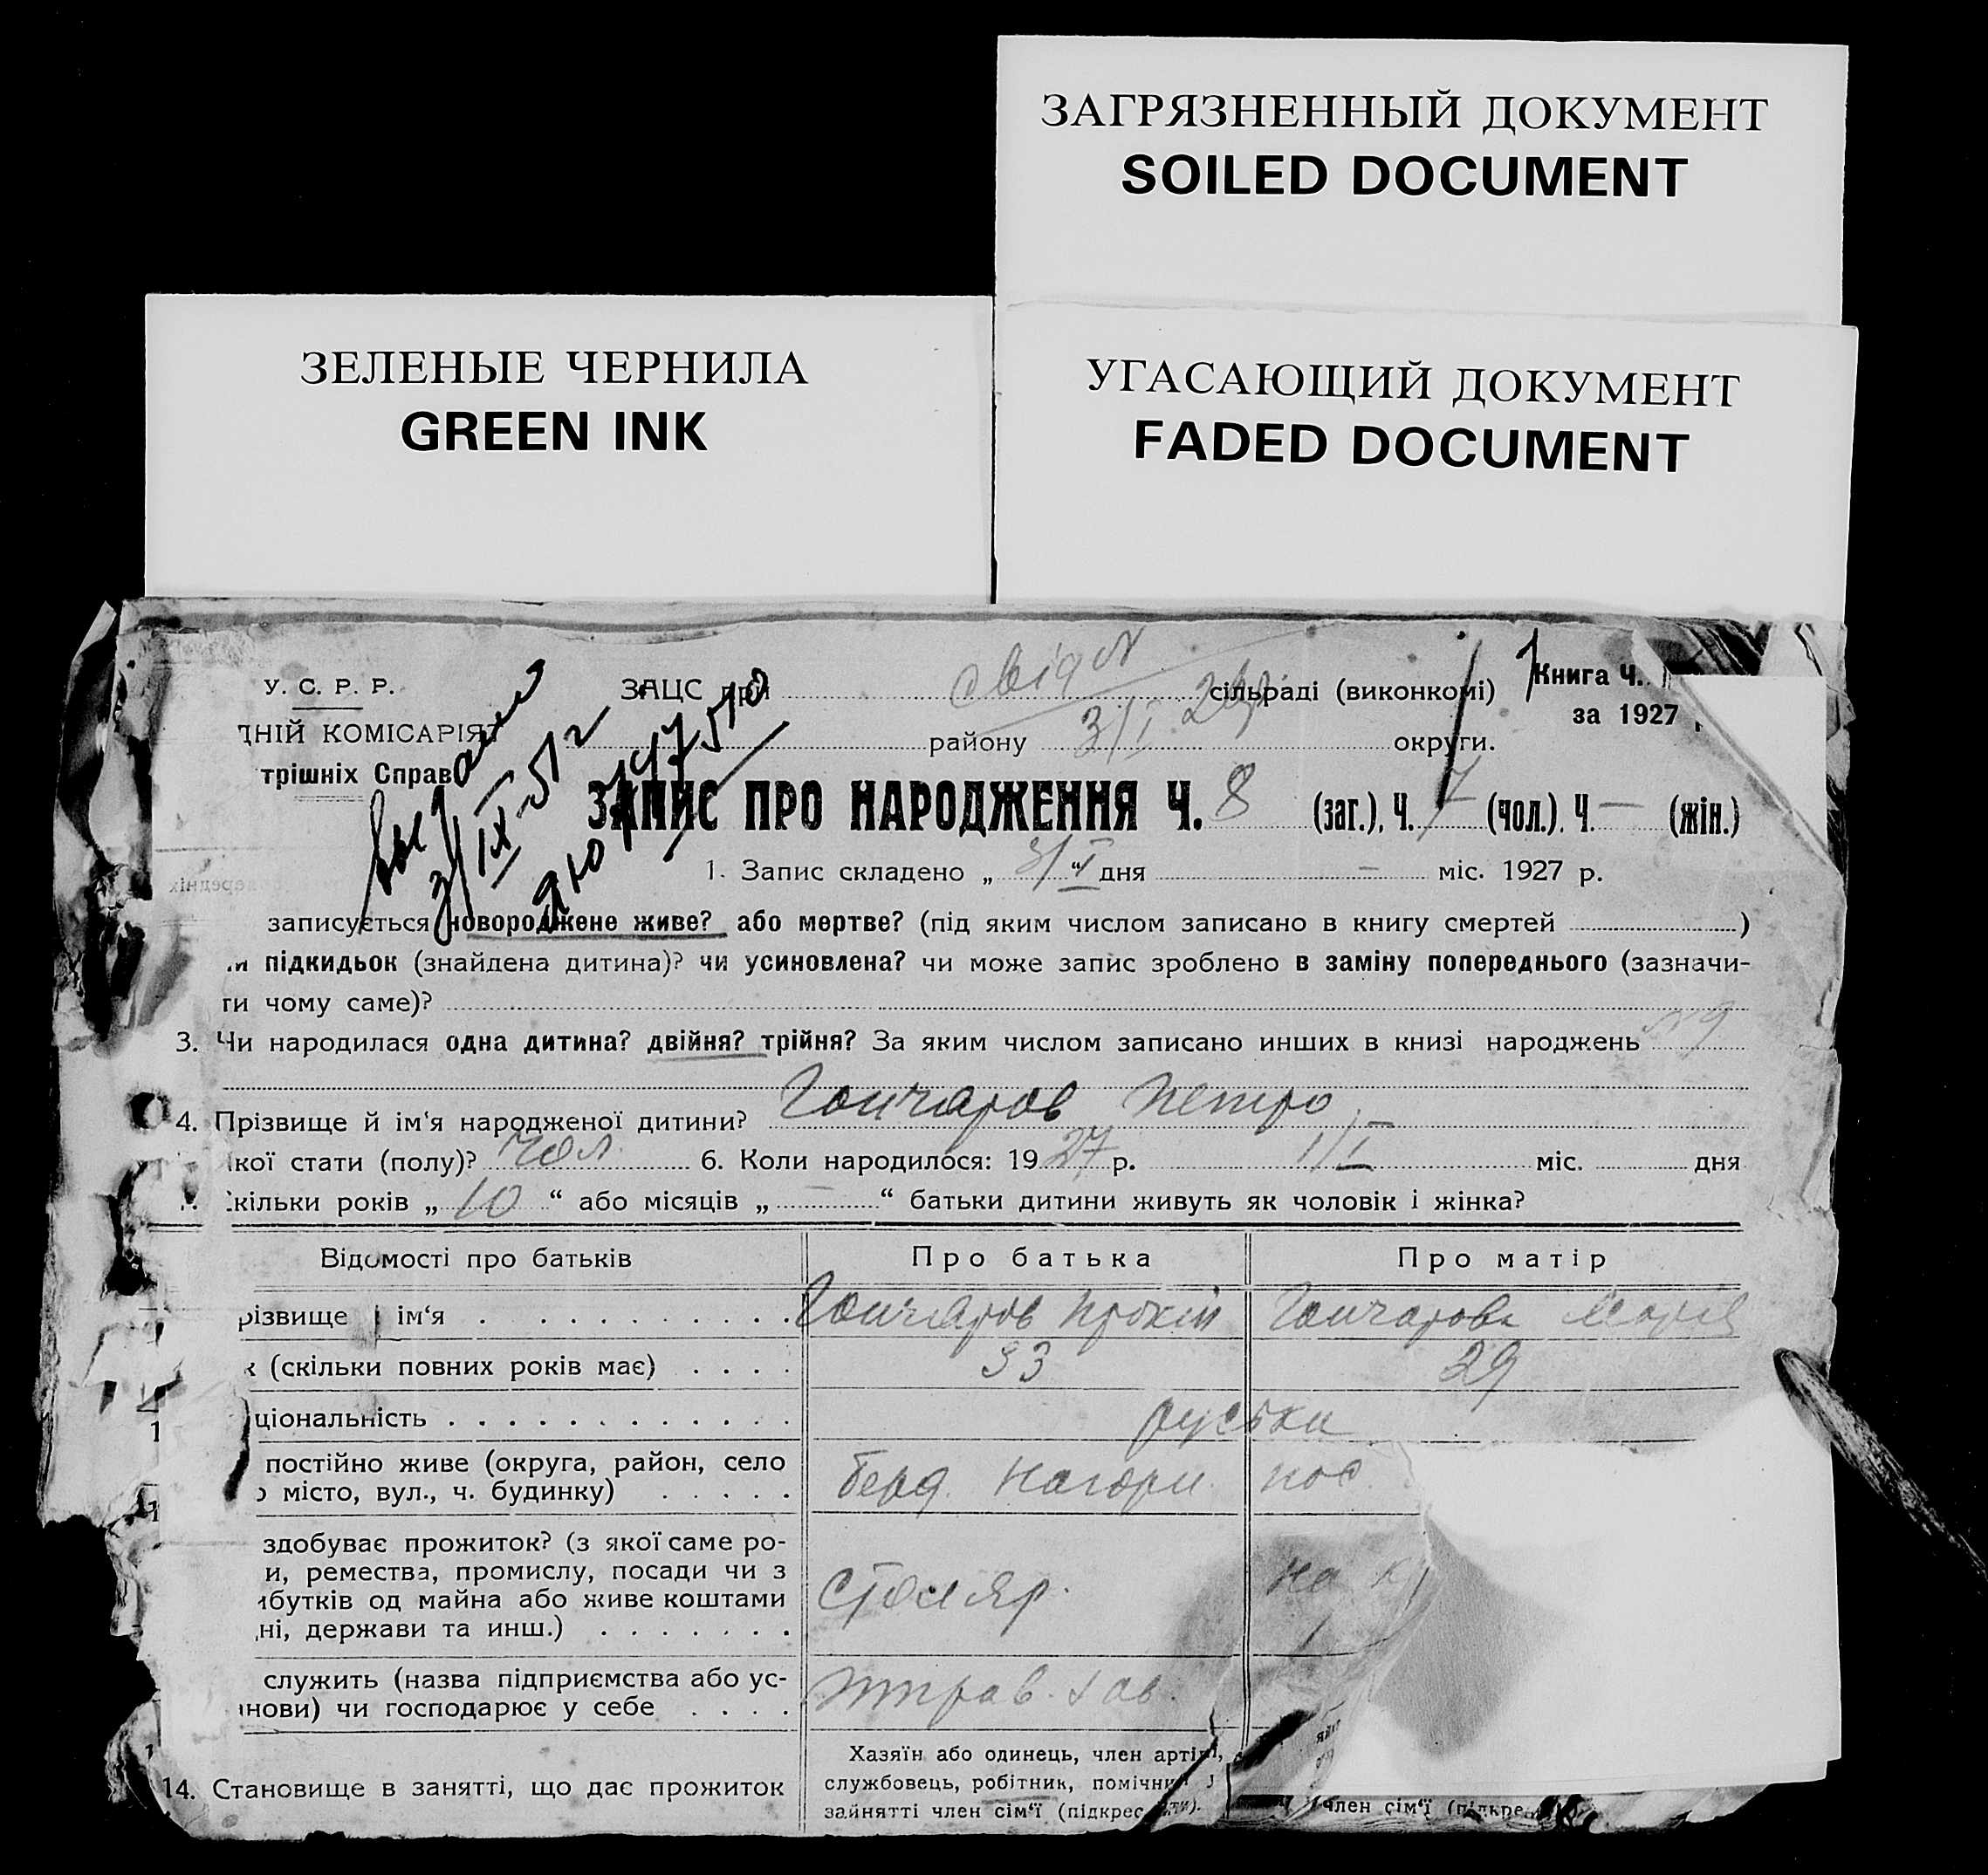 ЗАГРЯЗНЕННЫЙ ДОКУМЕНТ
SOILED DOCUMENT
ЗЕЛЕНЫЕ ЧЕРНИЛА
GREEN INK
УГАСАЮЩИЙ ДОКУМЕНТ
FADED DOCUMENT
У. С. Р. Р.
ДНІЙ КОМІСАРІЯТ
трішніх Справ
ЗАЦС при сільраді (виконкомі)
району 3/I округи.
Книга Ч.
за 1927
ЗАПИС ПРО НАРОДЖЕННЯ Ч. 8 (заг.), Ч. 7 (чол.), Ч. — (жін.)
1. Запис складено „ 3/I “ дня — міс. 1927 р.
записується новороджене живе? або мертве? (під яким числом записано в книгу смертей )
чи підкидьок (знайдена дитина)? чи усиновлена? чи може запис зроблено в заміну попереднього (зазначи-
ти чому саме)?
3. Чи народилася одна дитина? двійня? трійня? За яким числом записано инших в книзі народжень №9
4. Прізвище й ім‘я народженої дитини? Гончаров Петро
якої стати (полу)? чол. 6. Коли народилося: 1927 р. 1/I міс. дня
Скільки років „ 10 “ або місяців „ — “ батьки дитини живуть як чоловік і жінка?
Відомості про батьків Про батька Про матір
різвище і ім‘я Гончаров Прокіп Гончарова Марія
к (скільки повних років має) 33 29
ціональність руська
постійно живе (округа, район, село
о місто, вул., ч. будинку) Берд. Нагорн. пос.
здобуває прожиток? (з якої саме ро-
и, ремества, промислу, посади чи з
ибутків од майна або живе коштами
ні, держави та инш.) Столяр. на
служить (назва підприємства або ус-
анови) чи господарює у себе
14. Становище в занятті, що дає прожиток
Хазяїн або одинець, член артілі,
службовець, робітник, помічний
зайнятті член сім‘ї (підкреслити).
член сім‘ї